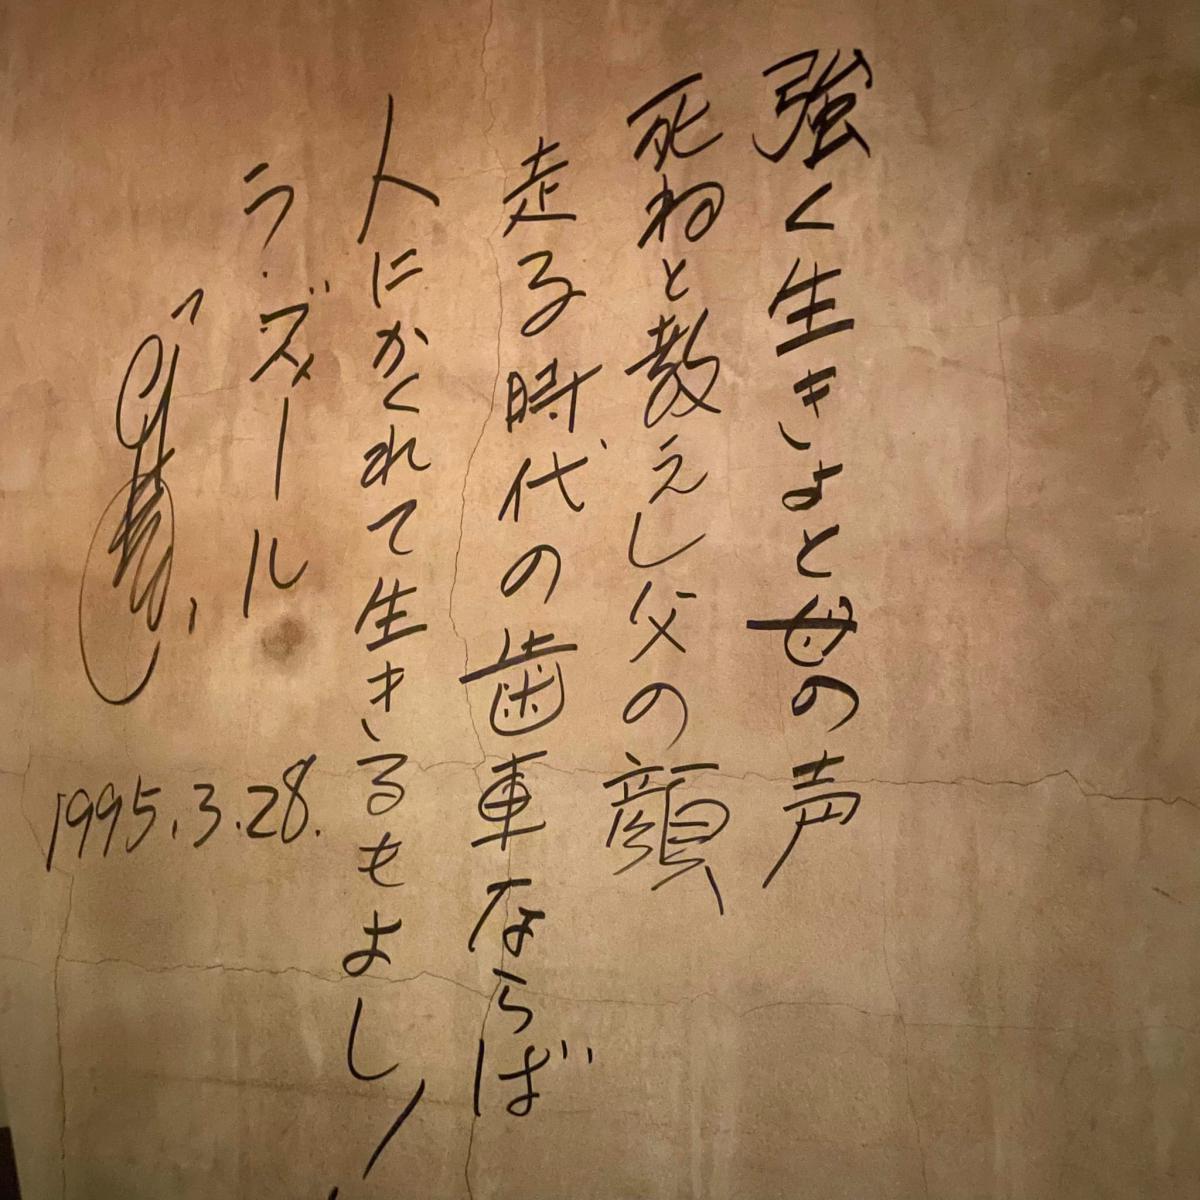 強く生きよと母の声
死ねと教えし父の顔
走る時代の歯車ならば
人にかくれて生きるもよし!
ラ・ズール
1995.3.28.